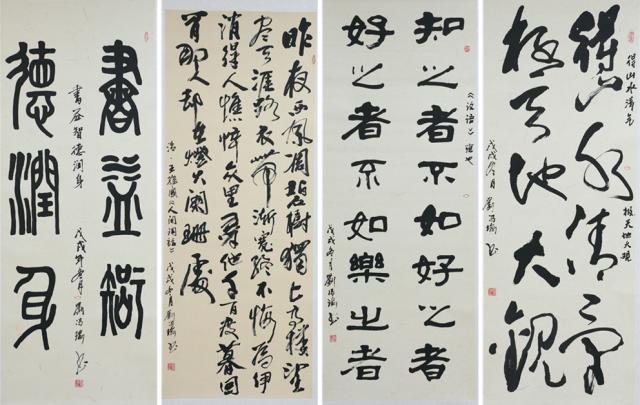 得山水清气
得山水清气
極天地大觀
極天地大觀
戊戌冬月 劉
知之者不如好之者
《论语》雍也
好之者不如樂之者
戊戌冬月劉
昨夜西風凋碧樹獨上高樓望
盡天涯路衣帶漸寬終不悔為伊
消得人憔悴衆里尋他千百度驀回
首那人却在燈火闌珊處
清·王國維《人间词话》戊戌冬月劉
書益智
書益智德润身
戊戌年冬月劉
德潤身